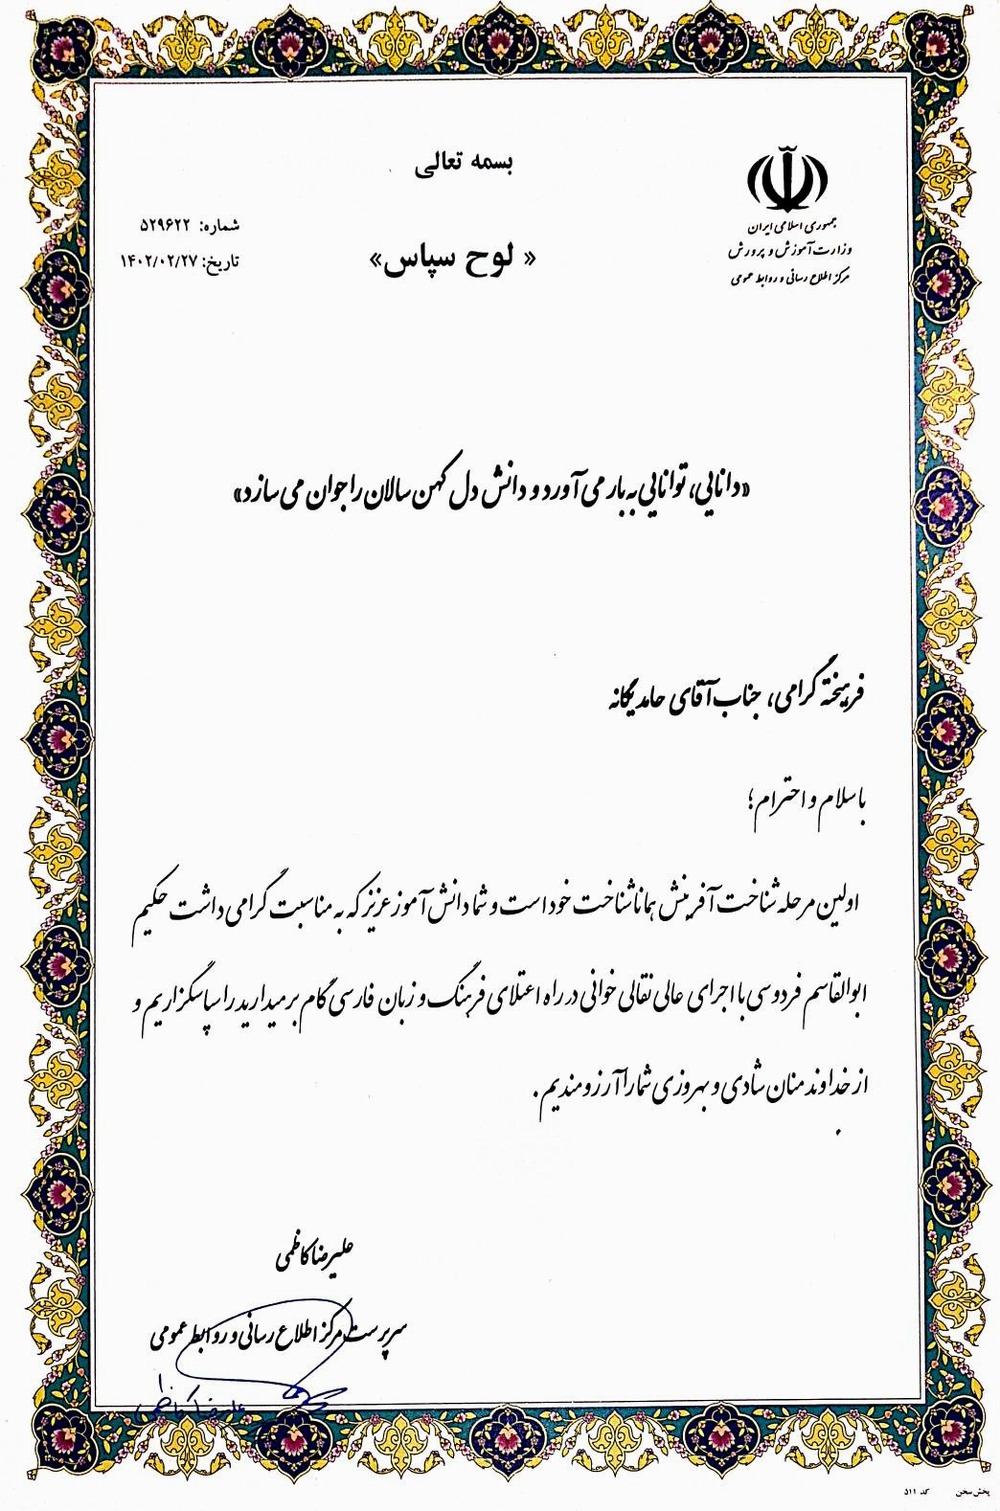 بسمه تعالی
جمهوری اسلامی ایران
وزارت آموزش و پرورش
مرکز اطلاع رسانی و روابط عمومی
شماره: ۵۲۹۶۲۲
تاریخ: ۱۴۰۲/۰۲/۲۷
« لوح سپاس»
«دانایی، توانایی به بار می آورد و دانش دل کهن سالان را جوان می سازد»
فرهیخته گرامی، جناب آقای حامد یگانه
با سلام و احترام؛
اولین مرحله شناخت آفرینش همانا شناخت خود است و شما دانش آموز عزیز که به مناسبت گرامی داشت حکیم
ابوالقاسم فردوسی با اجرای عالی نقالی خوانی در راه اعتلای فرهنگ و زبان فارسی گام برمیدارید را سپاسگزاریم و
از خداوند منان شادی و بهروزی شما را آرزومندیم.
علیرضا کاظمی
سرپرست مرکز اطلاع رسانی و روابط عمومی
علیرضا کاظمی
پخش سخن کد ۵۱۱